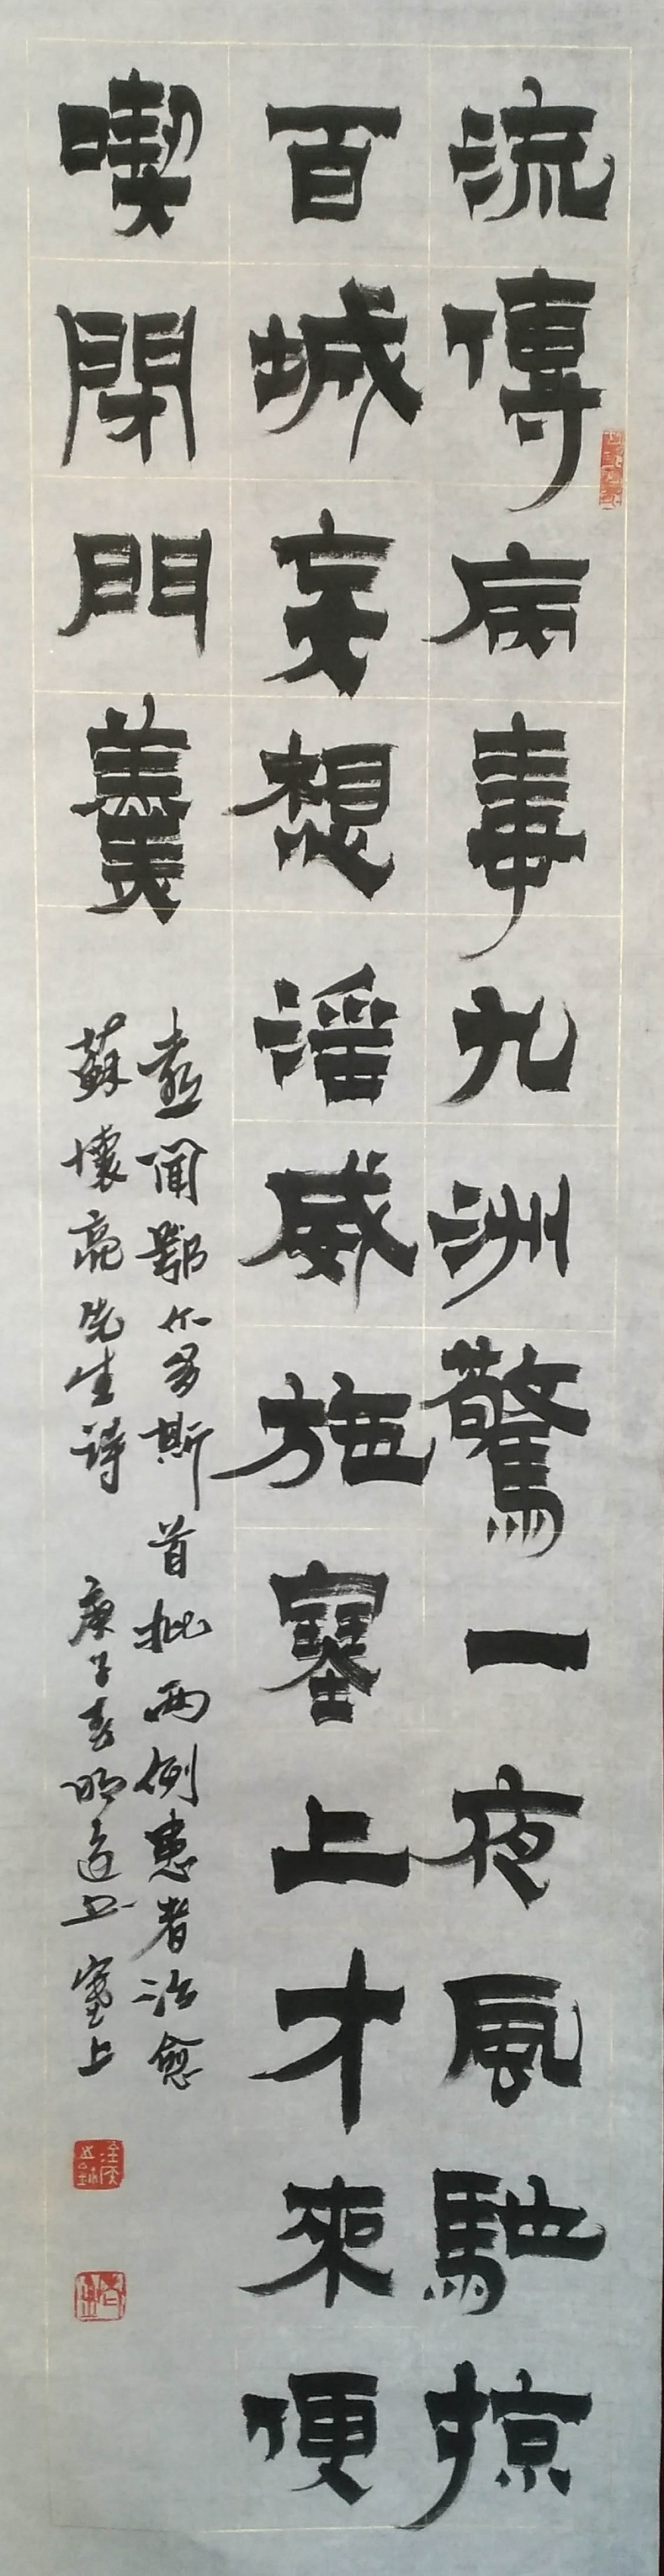 流傳病毒九洲驚一夜風馳掠
百城妄想淫威施塞上才來便
喫閉門羹
喜聞鄂尔多斯首批两例患者治愈
蘇懷亮先生詩 庚子春明遠书塞上